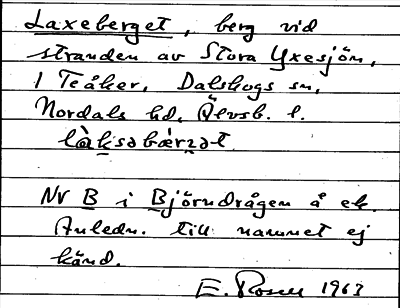 Laxeberget, berg vid
stranden av Stora Yxesjön,
1 Teåker, Dalskogs sn,
Nordals hd, Älvsb. l.
là̱ksəbær̀ẕət
Nr B i Björndrågen å ek.
Anledn. till namnet ej
känd.
E. Rosen 1963